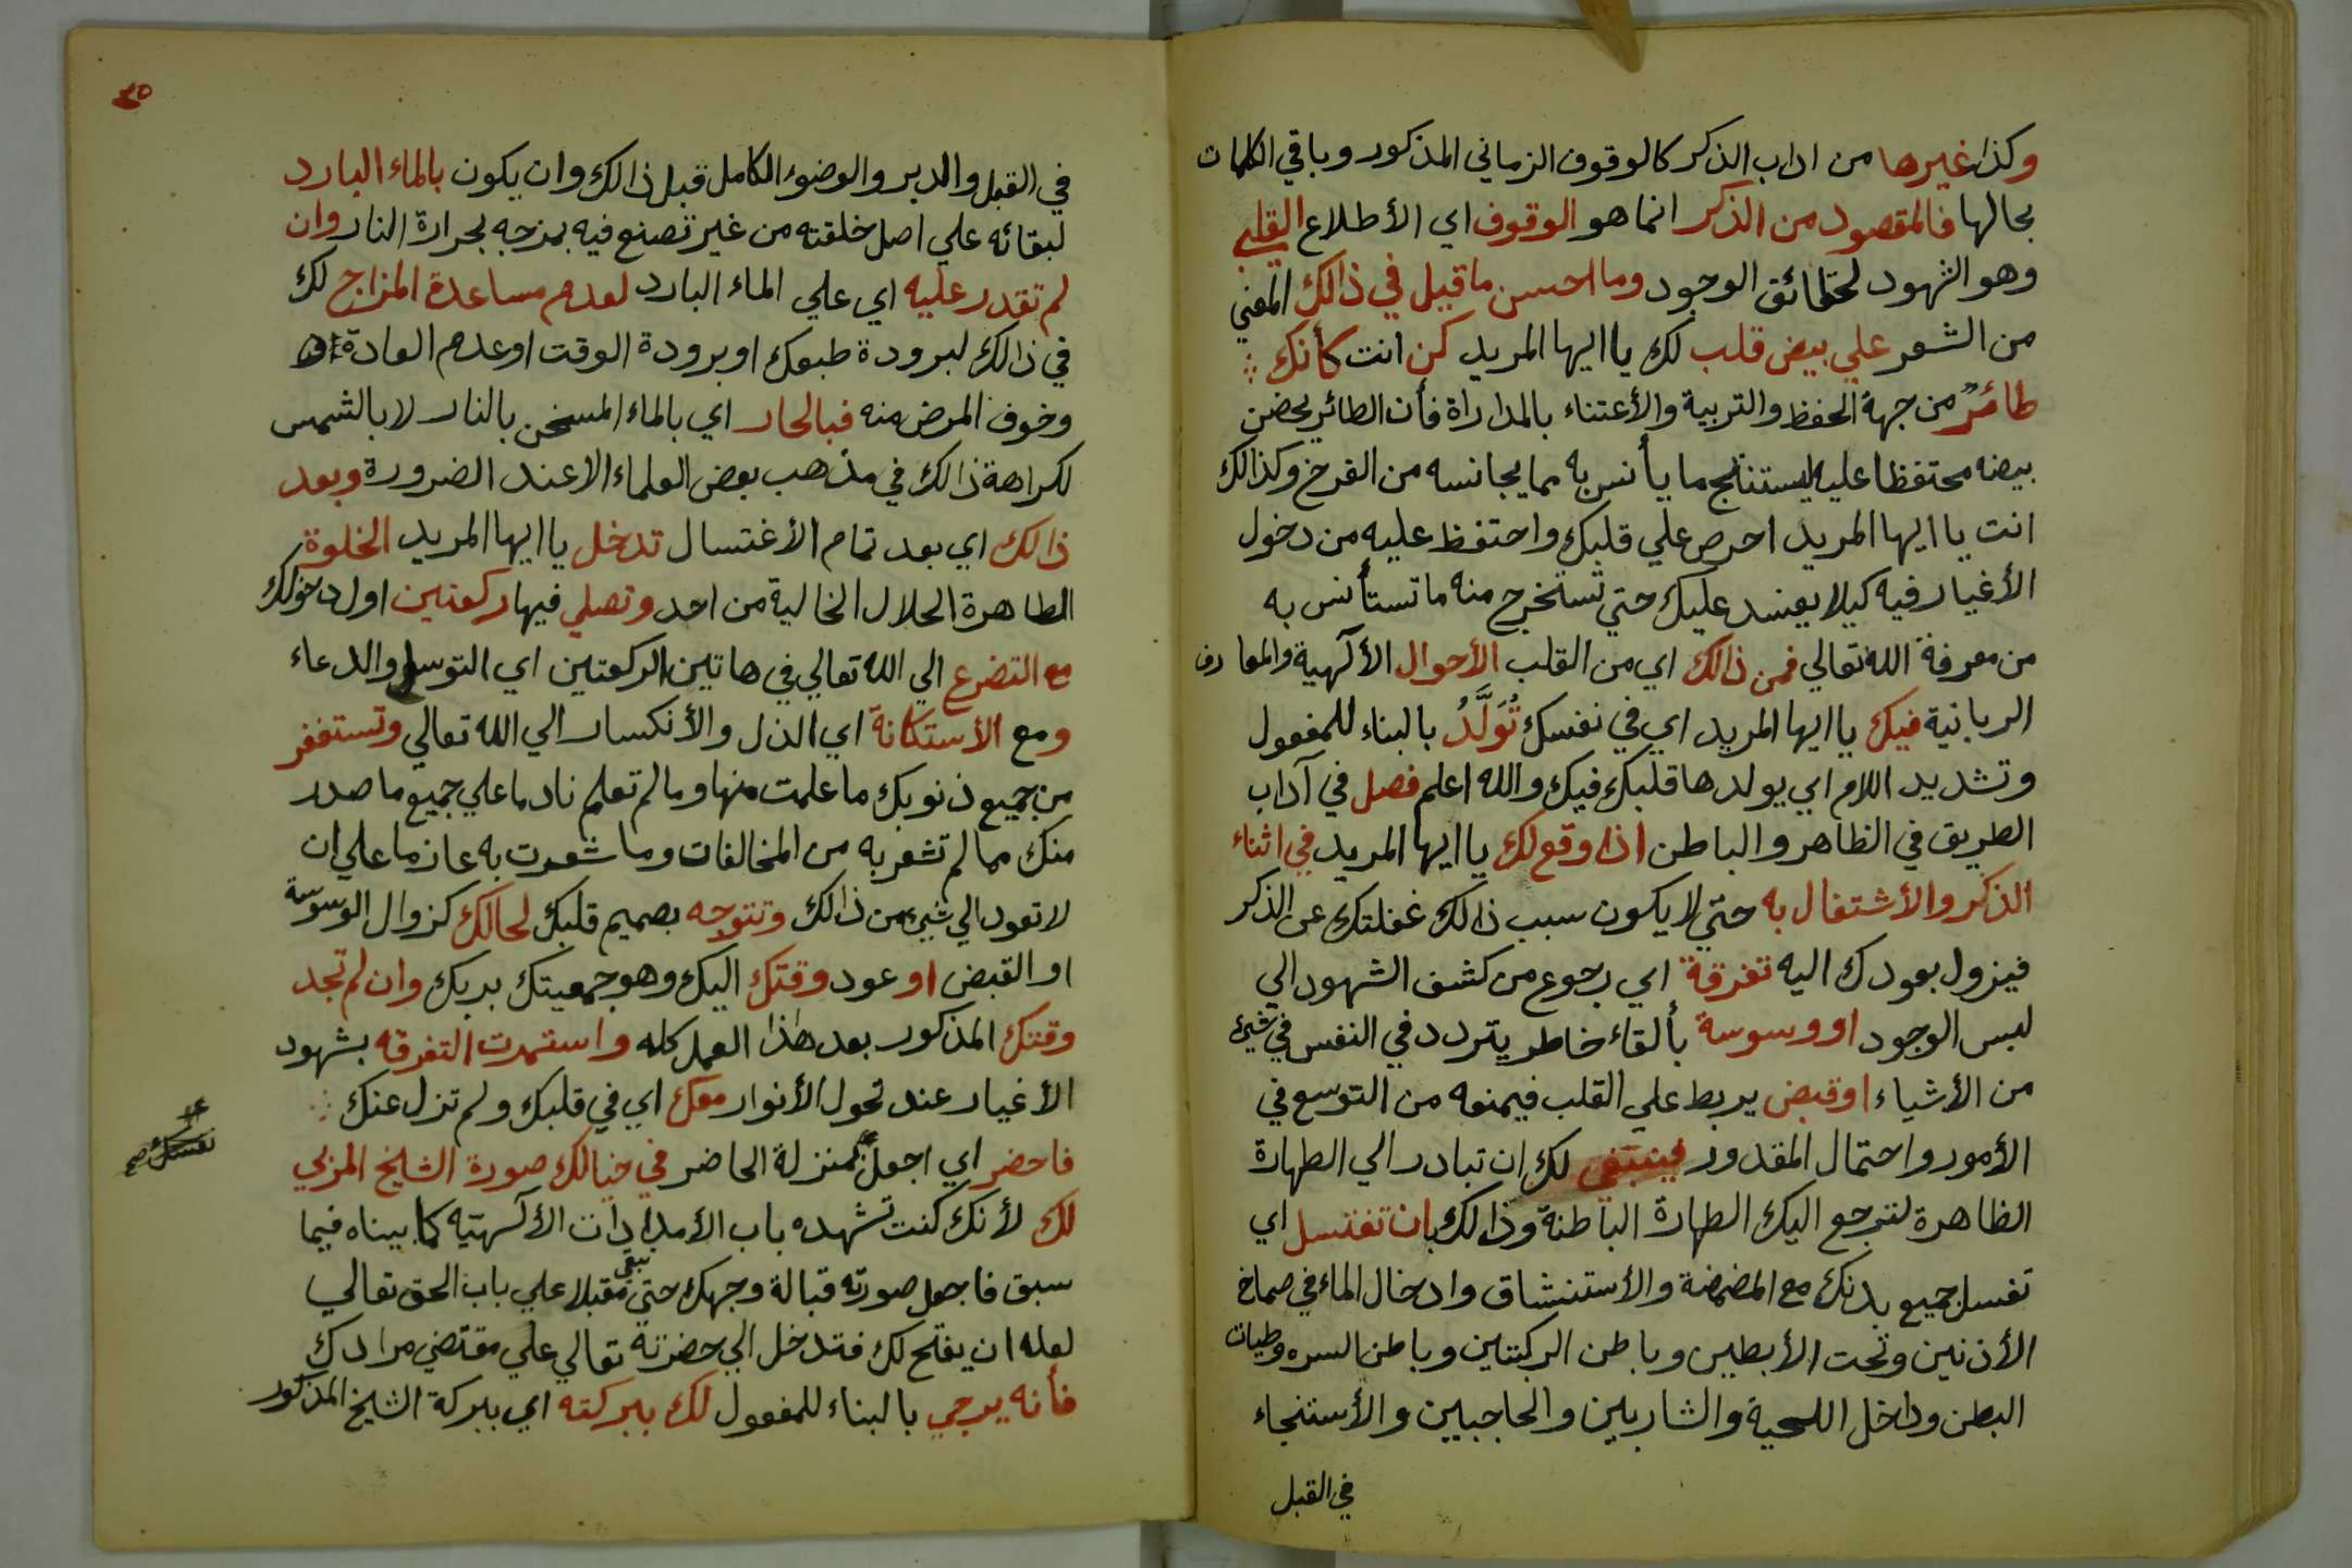 وكذا غيرها من اداب الذكر كالوقوف الزماني المذكور وباقي الكلمات
بحالها فالمقصود من الذكر انما هو الوقوف اي الأطلاع القلبي
وهو الشهود لحقائق الوجود وما احسن ما قيل في ذالك المعني
من الشعر علي بيض قلب لك يا ايها المريد كن انت كأنك
طائرٌ من جهة الحفظ والتربية والأعتناء بالمداراة فأن الطائر يحضن
بيضه محتفظا عليه ليستنتج ما يأنس به مما يجانسه من الفرخ وكذالك
انت يا ايها المريد احرص علي قلبك واحتفظ عليه من دخول
الأغيار فيه كيلا يفسد عليك حتي تستخرج منه ما تستأنس به
من معرفة الله تعالي فمن ذالك اي من القلب الأحوال الألهية والمعارف
الربانية فيك يا ايها المريد اي في نفسك تُوَلَّدُ بالبناء للمفعول
وتشديد اللام اي يولدها قلبك فيك والله اعلم فصل في آداب
الطريق في الظاهر والباطن اذا وقع لك يا ايها المريد في اثناء
الذكر والأشتغال به حتي لا يكون سبب ذالك غفلتك عن الذكر
فيزول بعودك اليه تفرقة اي رجوع من كشف الشهود الي
لبس الوجود او وسوسة بألقاء خاطر يتردد في النفس في شيء
من الأشياء او قبض يربط علي القلب فيمنعه من التوسع في
الأمور واحتمال المقدور فينبغي لك ان تبادر الي الطهارة
الظاهرة لترجع اليك الطهارة الباطنة وذالك بان تغتسل اي
تغسل جميع بدنك مع المضمضة والأستنشاق وادخال الماء في صماخ
الأذنين وتحت الأبطين وباطن الركبتين وباطن السره وطيات
البطن وداخل اللحية والشاربين والحاجبين والأستنجاء
في القبل
٣٥
في القبل والدبر والوضوء الكامل قبل ذالك وان يكون بالماء البارد
لبقائه علي اصل خلقته من غير تصنع فيه بمزجه بحرارة النار وان
لم تقدر عليه اي علي الماء البارد لعدم مساعدة المزاج لك
في ذالك لبرودة طبعك او برودة الوقت او عدم العادة
وخوف المرض منه فبالحار اي بالماء المسخن بالنار لا بالشمس
لكراهة ذالك في مذهب بعض العلماء الا عند الضرورة وبعد
ذالك اي بعد تمام الأغتسال تدخل يا ايها المريد الخلوة
الطاهرة الحلال الخالية من احد وتصلي فيها ركعتين اول دخولك
مع التضرع الي الله تعالي في هاتين الركعتين اي التوسل والدعاء
ومع الأستكانة اي الذل والأنكسار الي الله تعالي وتستغفر
من جميع ذنوبك ما علمت منها وما لم تعلم نادما علي جميع ما صدر
منك مما لم تشعر به من المخالفات وما شعرت به عازما علي ان
لا تعود الي شيء من ذالك وتتوجه بصميم قلبك لحالك كزوال الوسوسة
او القبض او عود وقتك اليك وهو جمعيتك بربك وان لم تجد
وقتك المذكور بعد هٰذا العمل كله واستمرت التفرقه بشهود
الأغيار عند تحول الأنوار معك اي في قلبك ولم تزل عنك
فاحضر اي اجعل بمنزلة الحاضر في خيالك صورة الشيخ المربي
لك لأنك كنت تشهده باب الأمدادات الألهتيه كما بيناه فيما
سبق فاجعل صورته قبالة وجهك حتي تبقى مقبلا علي باب الحق تعالي
لعله ان يفتح لك فتدخل الي حضرته تعالي علي مقتضي مرادك
فأنه يرجي بالبناء للمفعول لك ببركته اي ببركة الشيخ المذكور